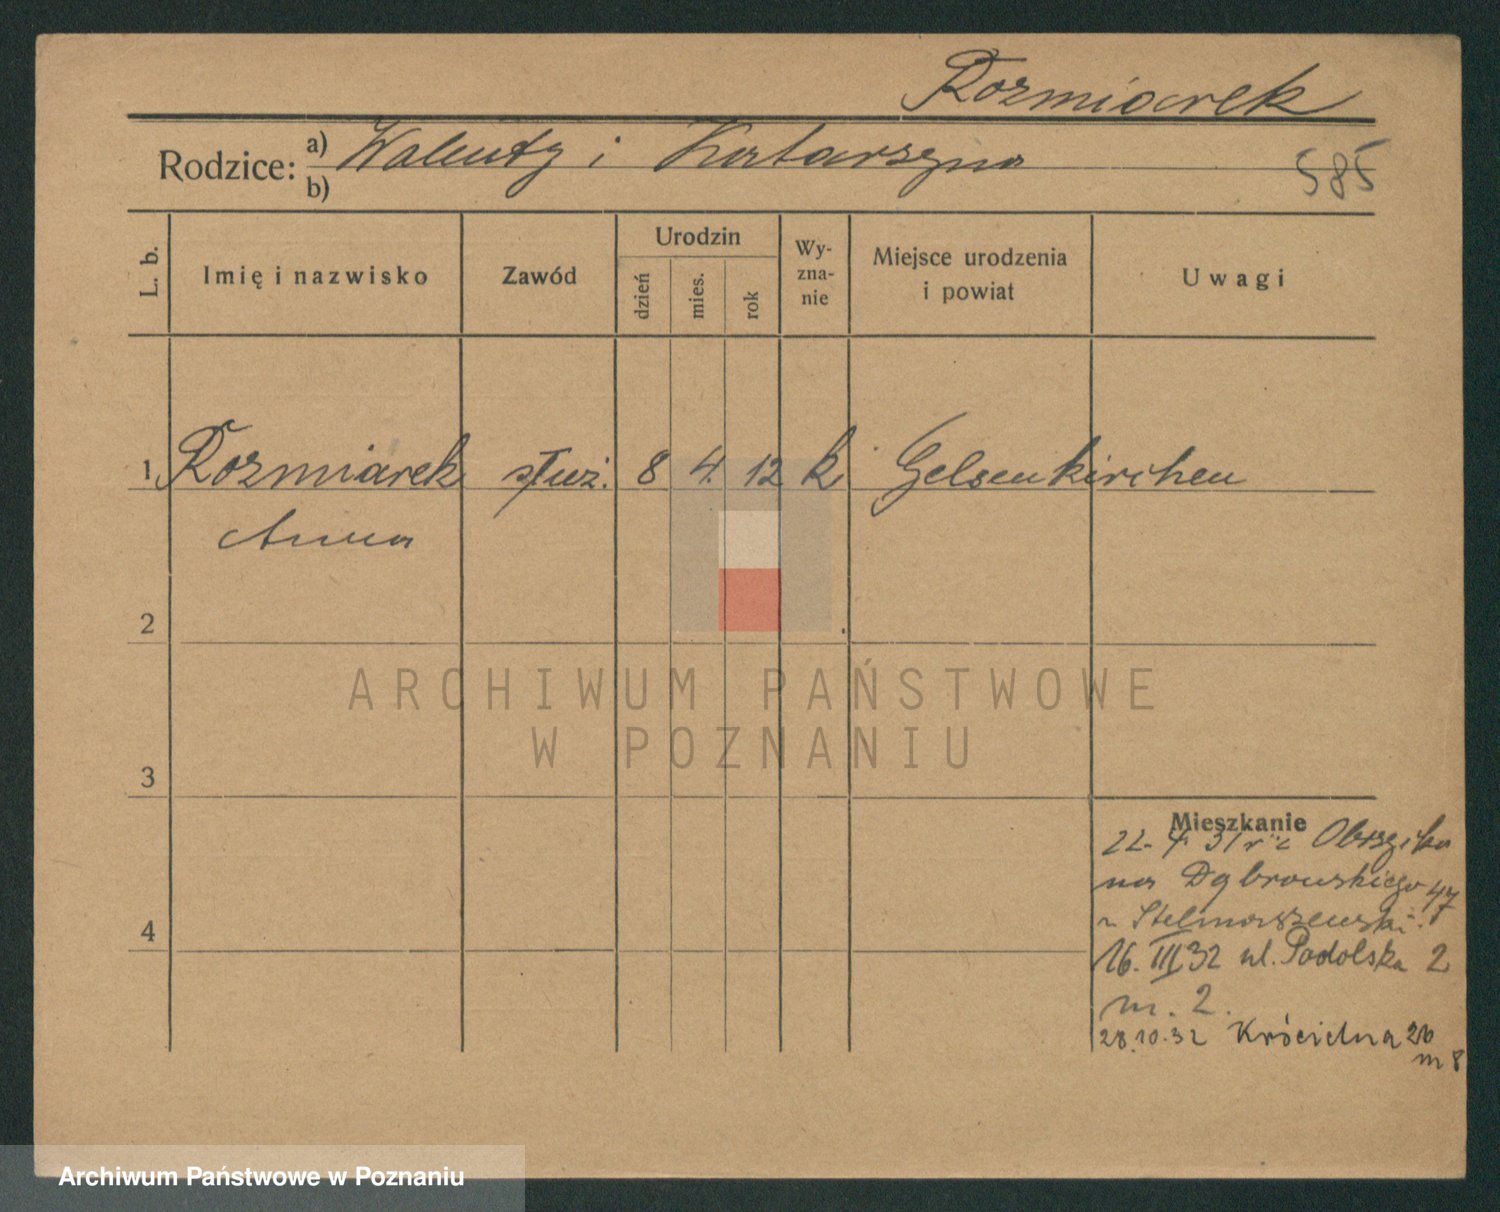 Rozmiarek
Rodzice: a) Walenty i Katarzyna
b)
585
L. b.
Imię i nazwisko
Zawód
Urodzin
dzień
mies.
rok
Wy-
zna-
nie
Miejsce urodzenia
i powiat
Uwagi
1 Rozmiarek służ. 8 4. 12 k. Gelsenkirchen
Anna
2
3
4
Mieszkanie
22. 4. 31 r z Obrzyka
na Dąbrowskiego 47
Stelmaszewski.
16. III 32 ul. Podolska 2
m. 2.
28.10.32 26
m 8
ARCHIWUM PAŃSTWOWE
W POZNANIU
Archiwum Państwowe w Poznaniu